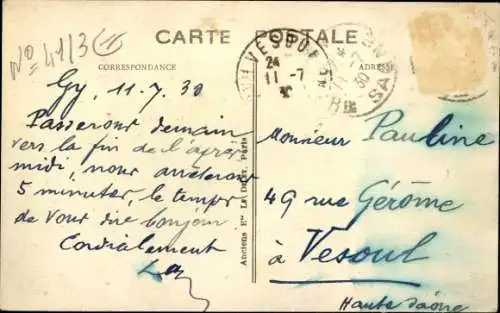 CARTE POSTALE
No 4113
CORRESPONDANCE
ADRESSE
VESOUL
24
11 -7
30
Gy, 11.7.30
Passerons demain
vers la fin de l'après
midi, nous arrêterons
5 minutes, le temps
de vous dire bonjour
Cordialement
Anciens Etts Paris
Monsieur Pauline
49 rue Gérôme
à Vesoul
Haute Saône